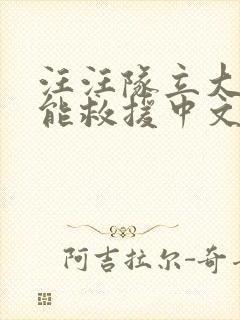 汪汪队立大
能救援中文
阿吉拉尔-奇